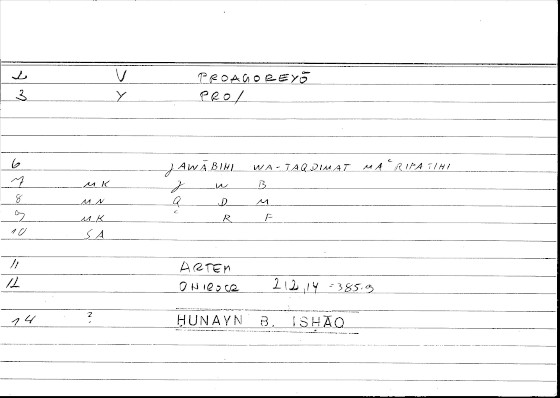 2 V PROAGOREYŌ
3 Y PRO/
6 JAWĀBIHI WA-TAQDIMAT MAʿRIFATIHI
7 MK J W B
8 MN Q D M
9 MK ʿ R F
10 SA
11 ARTEM
12 ONIROCR 212,14 = 385.9
14 ? ḤUNAYN B. ISḤĀQ